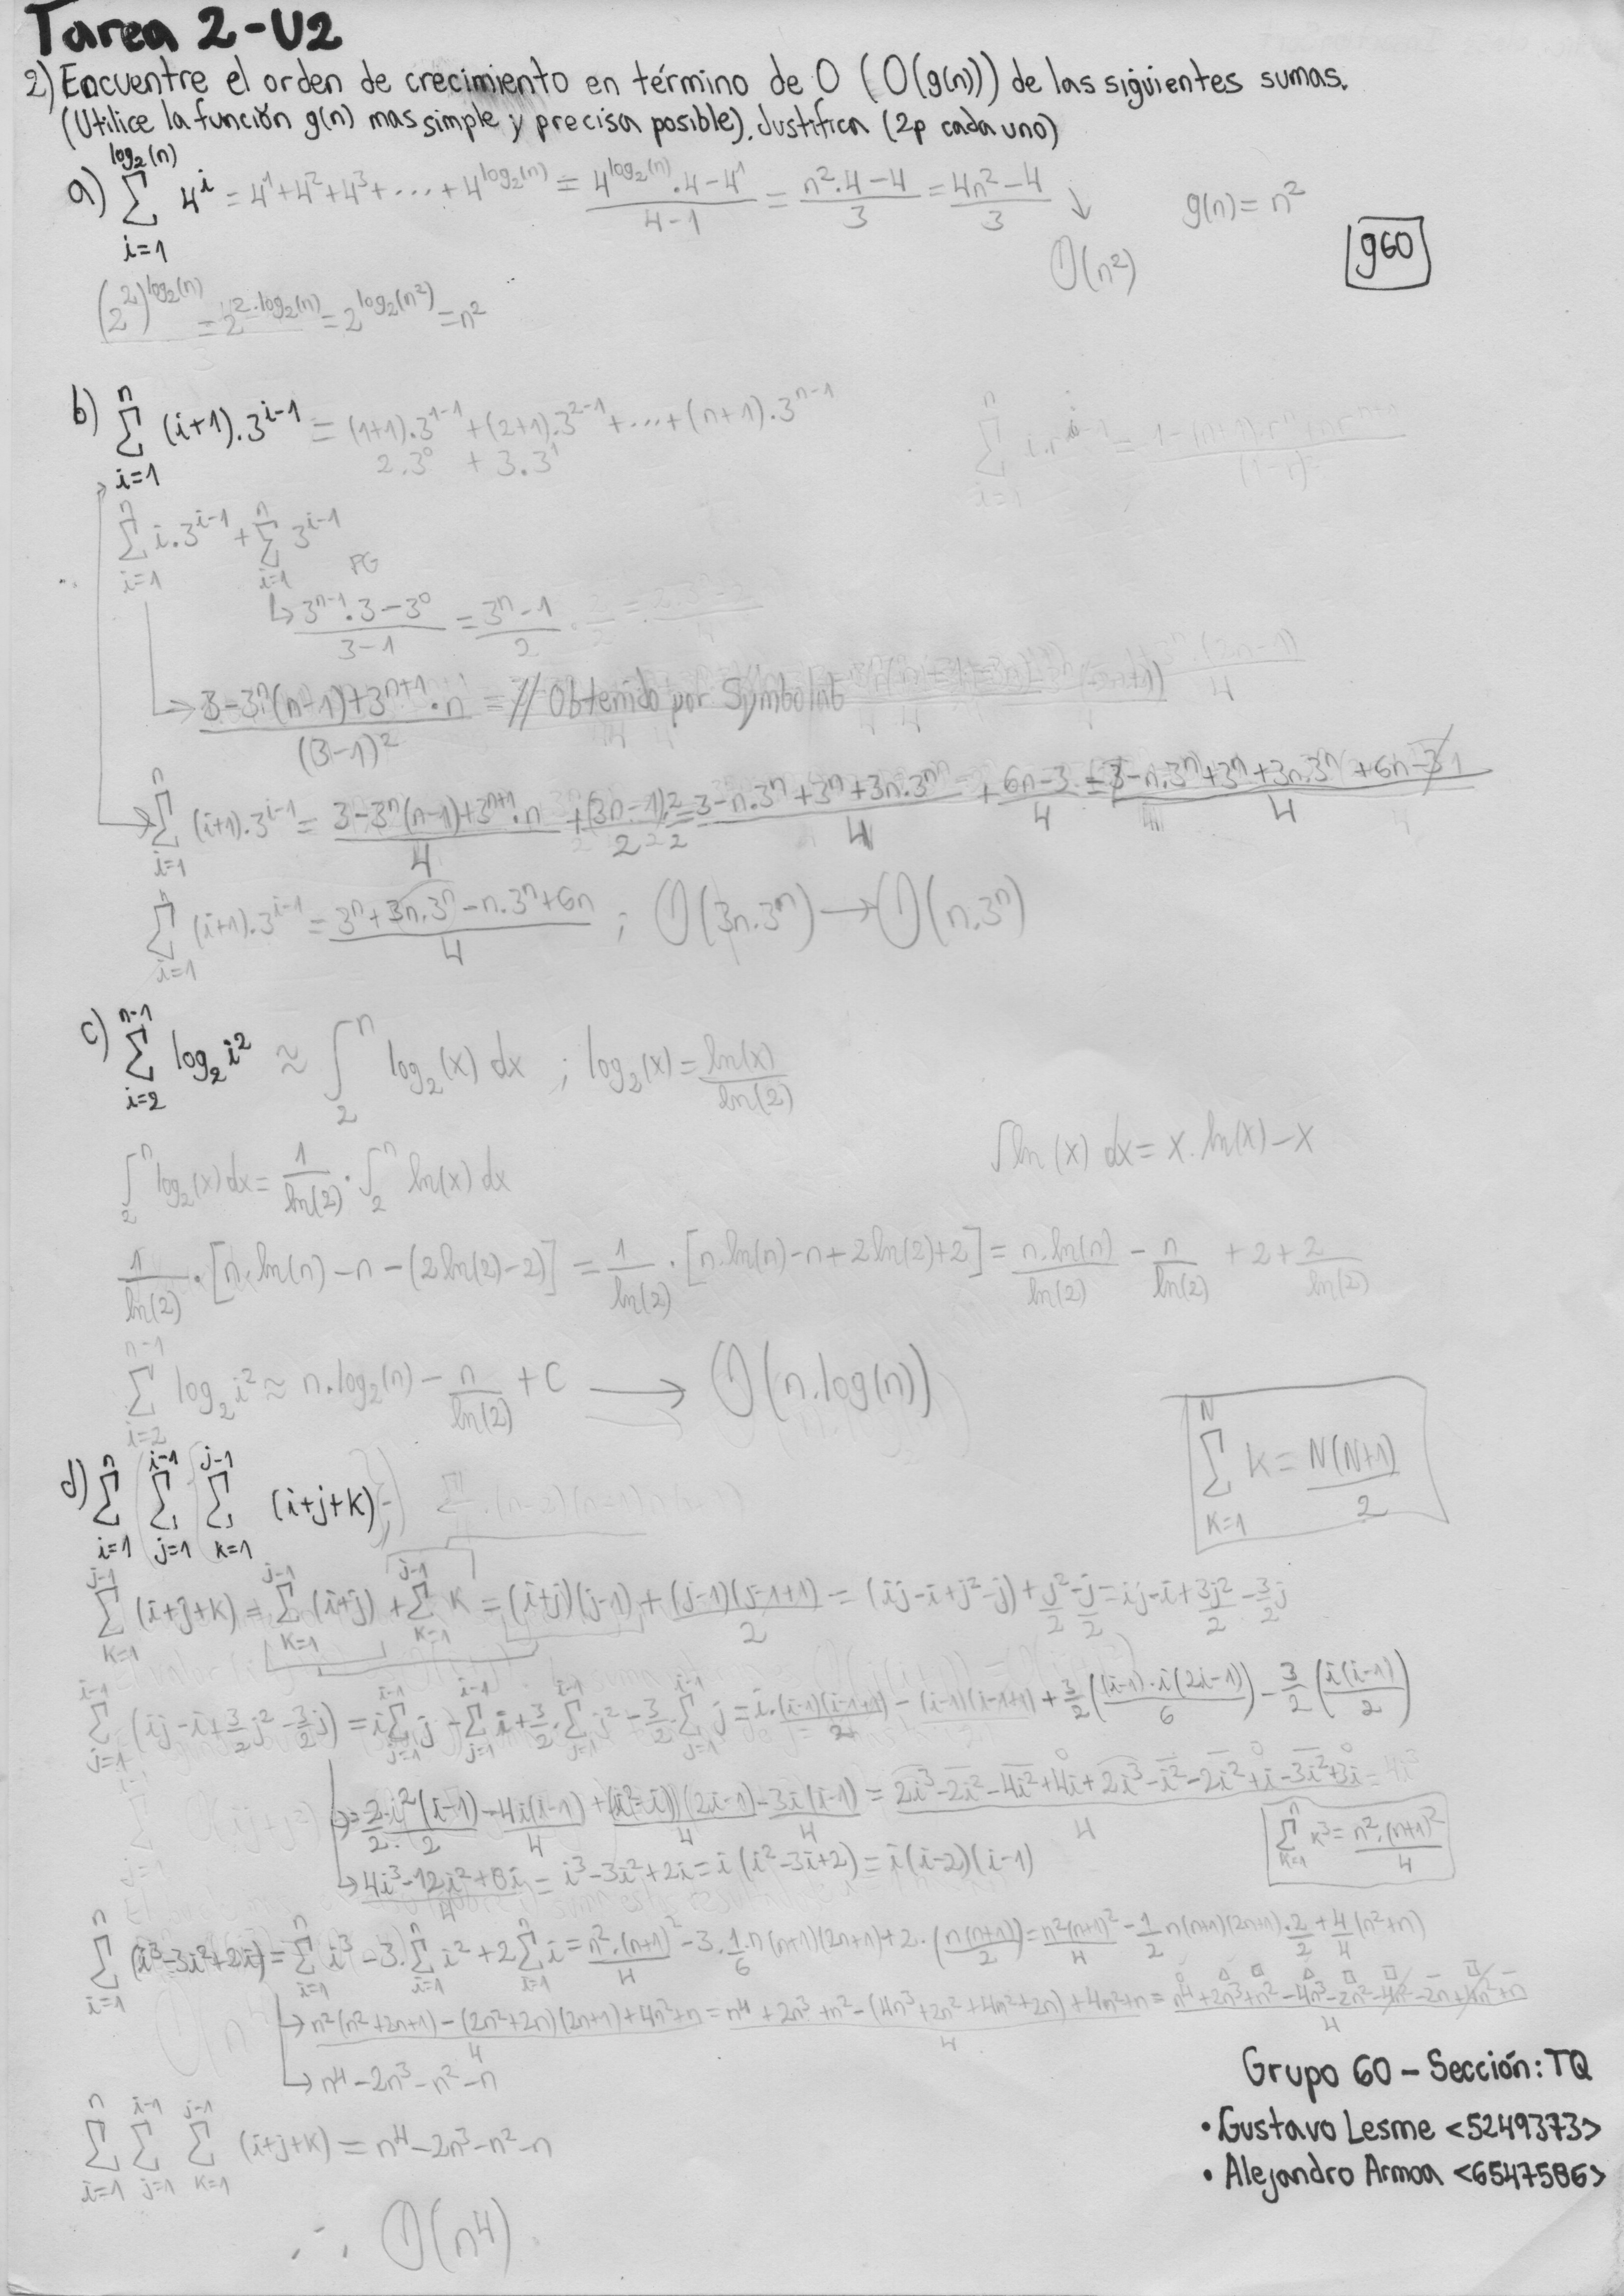 Tarea 2-U2
2) Encuentre el orden de crecimiento en término de O (O(g(n))) de las siguientes sumas.
(Utilice la función g(n) mas simple y precisa posible). Justifica (2p cada uno)
a) ∑_{i=1}^{log₂(n)} 4^i = 4^1+4^2+4^3+....+4^{log₂(n)} = (4^{log₂(n)}.4-4^1)/(4-1) = (n².4-4)/3 = (4n²-4)/3 ↓ g(n)=n²
O(n²)
g60
(2²)^{log₂(n)} = 2^{2.log₂(n)} = 2^{log₂(n²)} = n²
b) ∑_{i=1}^{n} (i+1).3^{i-1} = (1+1).3^{1-1}+(2+1).3^{2-1}+....+(n+1).3^{n-1}
2.3^0 + 3.3^1
∑_{i=1}^{n} i.3^{i-1} + ∑_{i=1}^{n} 3^{i-1}
PG
↳ (3^{n-1}.3-3^0)/(3-1) = (3^n-1)/2
→ (3-3^n(n-1)+3^{n+1}.n)/(3-1)² = // Obtenido por Symbolab
→ ∑_{i=1}^{n} (i+1).3^{i-1} = (3-3^n(n-1)+3^{n+1}.n)/4 + (3n-1)/2.2/2 = (3-n.3^n+3^n+3n.3^n)/4 + (6n-3)/4 = (3-n.3^n+3^n+3n.3^n+6n-3)/4
∑_{i=1}^{n} (i+1).3^{i-1} = (3^n+3n.3^n-n.3^n+6n)/4 ; O(3n.3^n) → O(n.3^n)
c) ∑_{i=2}^{n-1} log₂i² ≈ ∫_2^n log₂(x) dx ; log₂(x) = ln(x)/ln(2)
∫_2^n log₂(x) dx = 1/ln(2) . ∫_2^n ln(x) dx
∫ln(x) dx = x.ln(x)-x
1/ln(2) . [n.ln(n)-n-(2ln(2)-2)] = 1/ln(2) . [n.ln(n)-n+2ln(2)+2] = n.ln(n)/ln(2) - n/ln(2) + 2 + 2/ln(2)
∑_{i=2}^{n-1} log₂i² ≈ n.log₂(n) - n/ln(2) + C → O(n.log(n))
∑_{K=1}^{N} K = N(N+1)/2
d) ∑_{i=1}^{n} ∑_{j=1}^{i-1} ∑_{k=1}^{j-1} (i+j+k)
∑_{K=1}^{j-1} (i+j+k) = ∑_{K=1}^{j-1} (i+j) + ∑_{K=1}^{j-1} K = (i+j)(j-1) + (j-1)(j-1+1)/2 = (ij-i+j²-j) + j²/2 - j/2 = ij-i+3j²/2-3/2j
∑_{j=1}^{i-1} (ij-i+3/2j²-3/2j) = i∑_{j=1}^{i-1} j - ∑_{j=1}^{i-1} i + 3/2.∑_{j=1}^{i-1} j² - 3/2.∑_{j=1}^{i-1} j = i.(i-1)(i-1+1)/2 - (i-1)(i-1+1) + 3/2((i-1).i(2i-1)/6) - 3/2(i(i-1)/2)
→ = 2/2.i²(i-1)/2 - 4i(i-1)/4 + (i²-i)(2i-1)/4 - 3i(i-1)/4 = (2i³-2i²-4i²+4i+2i³-i²-2i²+i-3i²+3i)/4
∑_{K=1}^{n} K³ = n².(n+1)²/4
↳ (4i³-12i²+8i)/4 = i³-3i²+2i = i(i²-3i+2) = i(i-2)(i-1)
∑_{i=1}^{n} (i³-3i²+2i) = ∑_{i=1}^{n} i³ - 3.∑_{i=1}^{n} i² + 2∑_{i=1}^{n} i = n².(n+1)²/4 - 3.1/6.n(n+1)(2n+1) + 2.(n(n+1)/2) = n²(n+1)²/4 - 1/2 n(n+1)(2n+1).2/2 + 4/4(n²+n)
→ (n²(n²+2n+1)-(2n²+2n)(2n+1)+4n²+n)/4 = (n⁴+2n³+n²-(4n³+2n²+4n²+2n)+4n²+n)/4 = (n⁴+2n³+n²-4n³-2n²-4n²-2n+4n²+n)/4
↳ n⁴-2n³-n²-n
∑_{i=1}^{n} ∑_{j=1}^{i-1} ∑_{K=1}^{j-1} (i+j+k) = n⁴-2n³-n²-n
∴ O(n⁴)
Grupo 60 - Sección: TQ
• Gustavo Lesme <5249373>
• Alejandro Armoa <6547586>